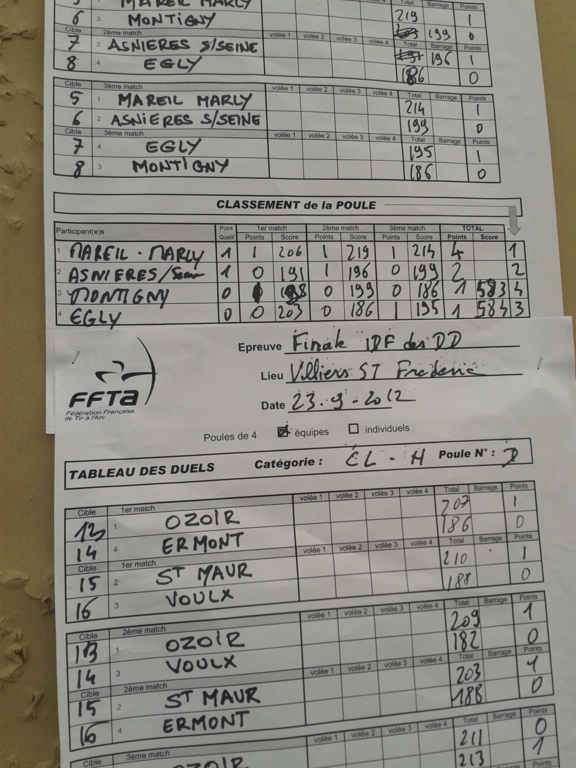 MAREIL MARLY
6 3 MONTIGNY 219 1
2ème match volée 1 volée 2 volée 3 volée 4 Barrage Points
199 0
7 2 ASNIERES S/SEINE Total Barrage Points
196 1
8 4 EGLY 186 0
Cible 3ème match volée 1 volée 2 volée 3 volée 4 Total Barrage Points
5 1 MAREIL MARLY 214 1
6 2 ASNIERES S/SEINE 199 0
Cible 3ème match volée 1 volée 2 volée 3 volée 4 Total Barrage Points
7 4 EGLY 195 1
8 3 MONTIGNY 186 0
CLASSEMENT de la POULE
Participant(e)s Point Qualif 1er match 2ème match 3ème match TOTAL
Points Score Points Score Points Score Points Score
1 MAREIL - MARLY 1 1 206 1 219 1 214 4 1
2 ASNIERES/Seine 1 0 191 1 196 0 199 2 2
3 MONTIGNY 0 0 199 0 186 1 583 4
4 EGLY 0 0 203 0 186 1 195 1 584 3
Epreuve Finale IDF des DD
Lieu Villiers ST Frederic
Date 23.9-2012
FFTA
Fédération Française
de Tir à l'Arc
Poules de 4 équipes individuels
TABLEAU DES DUELS Catégorie : CL - H Poule N° : D
Cible 1er match volée 1 volée 2 volée 3 volée 4 Total Barrage Points
13 1 OZOIR 207 1
14 4 ERMONT 186 0
Cible 1er match volée 1 volée 2 volée 3 volée 4 Total Barrage Points
15 2 ST MAUR 210 1
16 3 VOULX 188 0
Cible 2ème match volée 1 volée 2 volée 3 volée 4 Total Barrage Points
13 1 OZOIR 209 1
14 3 VOULX 182 0
Cible 2ème match volée 1 volée 2 volée 3 volée 4 Total Barrage Points
15 2 ST MAUR 203 1
16 4 ERMONT 188 0
Cible 3ème match volée 1 volée 2 volée 3 volée 4 Total Barrage Points
OZOIR 211 0
213 1